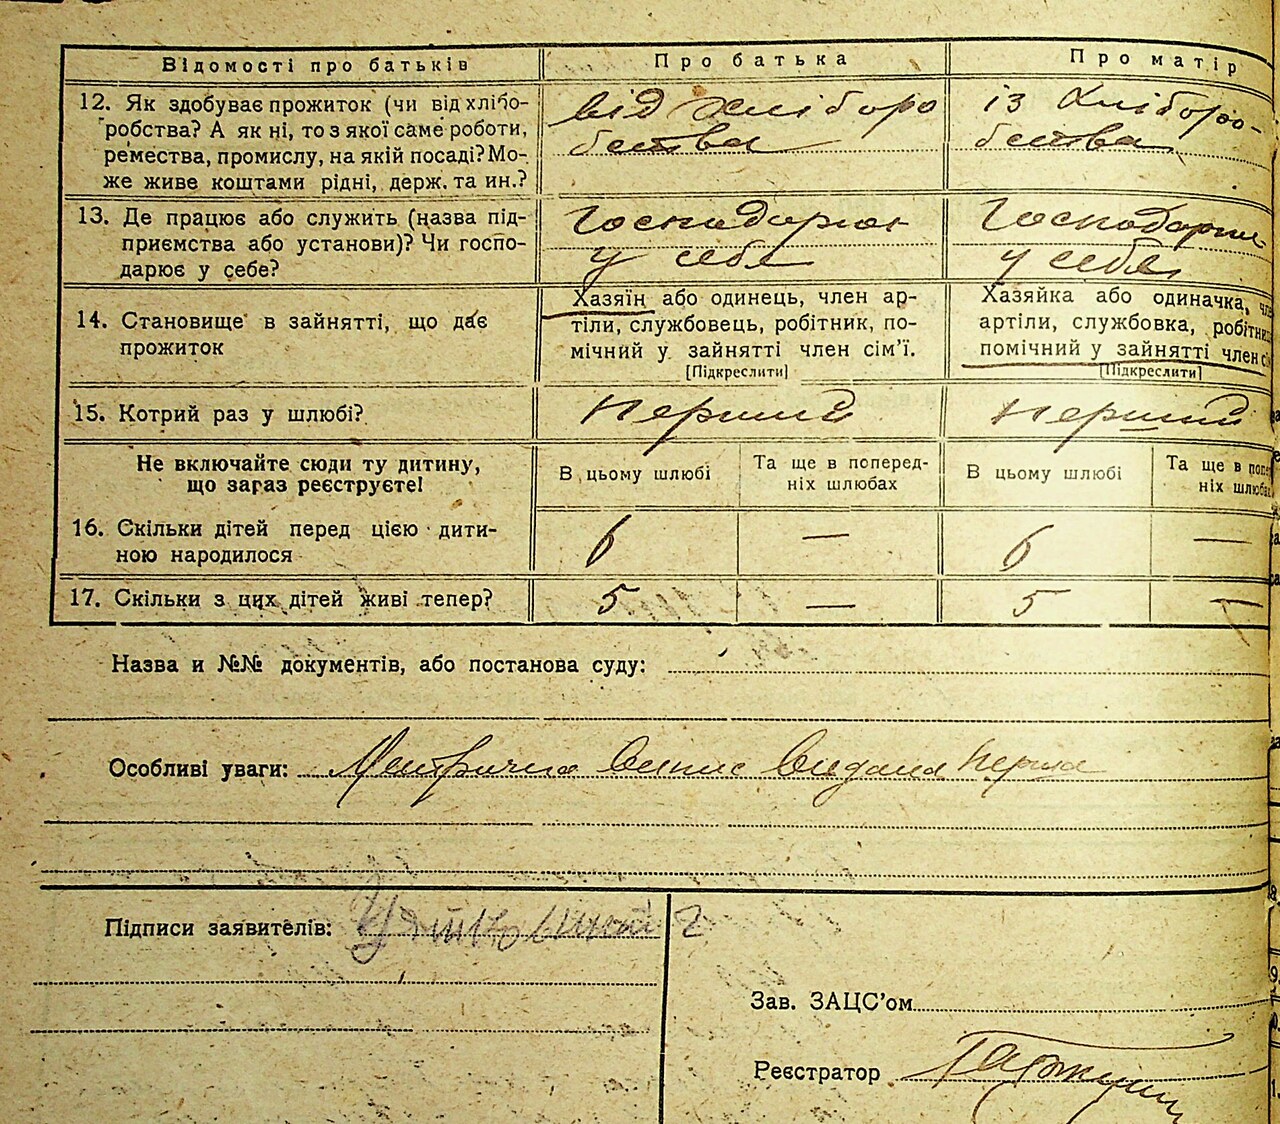 Відомості про батьків
Про батька
Про матір
12. Як здобуває прожиток (чи від хлібо-
робства? А як ні, то з якої саме роботи,
ремества, промислу, на якій посаді? Мо-
же живе коштами рідні, держ. та ин.?
від хліборо
бства
із хліборо-
бства
13. Де працює або служить (назва під-
приємства або установи)? Чи госпо-
дарює у себе?
Господарює
у себе
Господарює
у себе
14. Становище в зайнятті, що дає
прожиток
Хазяїн або одинець, член ар-
тіли, службовець, робітник, по-
мічний у зайнятті член сім'ї.
[Підкреслити]
Хазяйка або одиначка,
артіли, службовка,
помічний у зайнятті член
[Підкреслити]
15. Котрий раз у шлюбі?
перший
перший
Не включайте сюди ту дитину,
що зараз реєструєте!
В цьому шлюбі
Та ще в поперед-
ніх шлюбах
В цьому шлюбі
Та ще в
ніх
16. Скільки дітей перед цією дити-
ною народилося
6
—
6
—
17. Скільки з цих дітей живі тепер?
5
—
5
—
Назва и №№ документів, або постанова суду:
Особливі уваги: Метрична випис видана перша
Підписи заявителів:
Зав. ЗАЦС'ом
Реєстратор